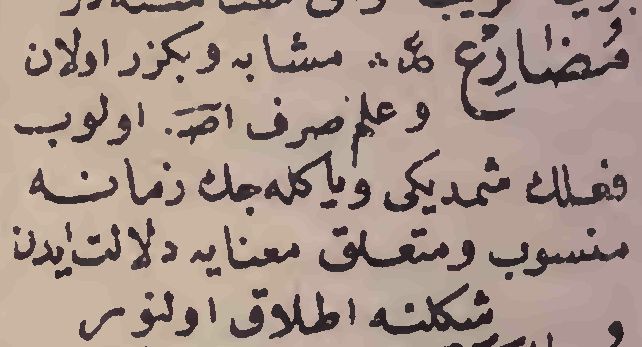 مُضَارِعْ مشابه وبكزر اولان
وعلم صرف اصـ. اولوب
فعلك شمديكى ويا كله جك زمانـه
منسوب ومتعلق معنايه دلالت ايدن
شكلنه اطلاق اولنور